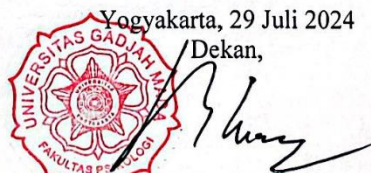 Yogyakarta, 29 Juli 2024
Dekan,
UNIVERSITAS GADJAH MADA
FAKULTAS PSIKOLOGI